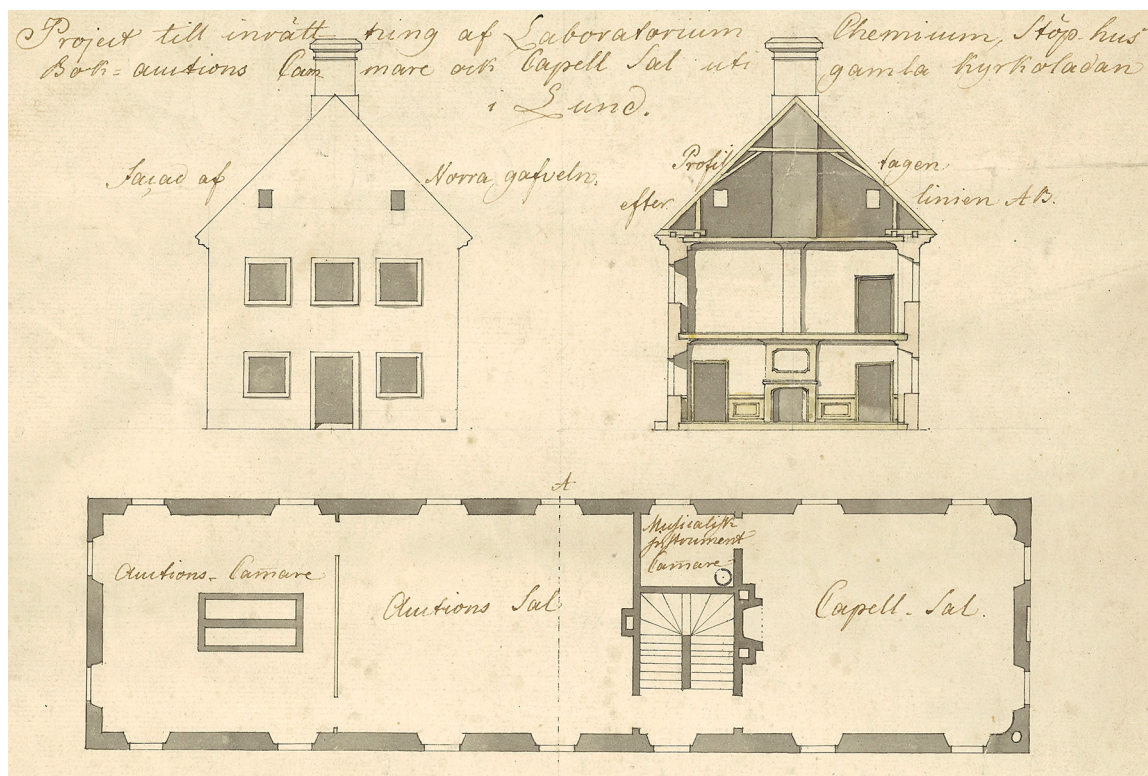 Project till inrättning af Laboratorium Chemicum, Stöp-hus
Bok-auctions Cammare ock Capell Sal uti gamla kyrkoladan
i Lund.
Façad af Norra gafveln.
Profil tagen
efter linien AB.
A
Musicalisk
Instrument
Camare
Auctions-Camare
Auctions Sal
Capell-Sal.